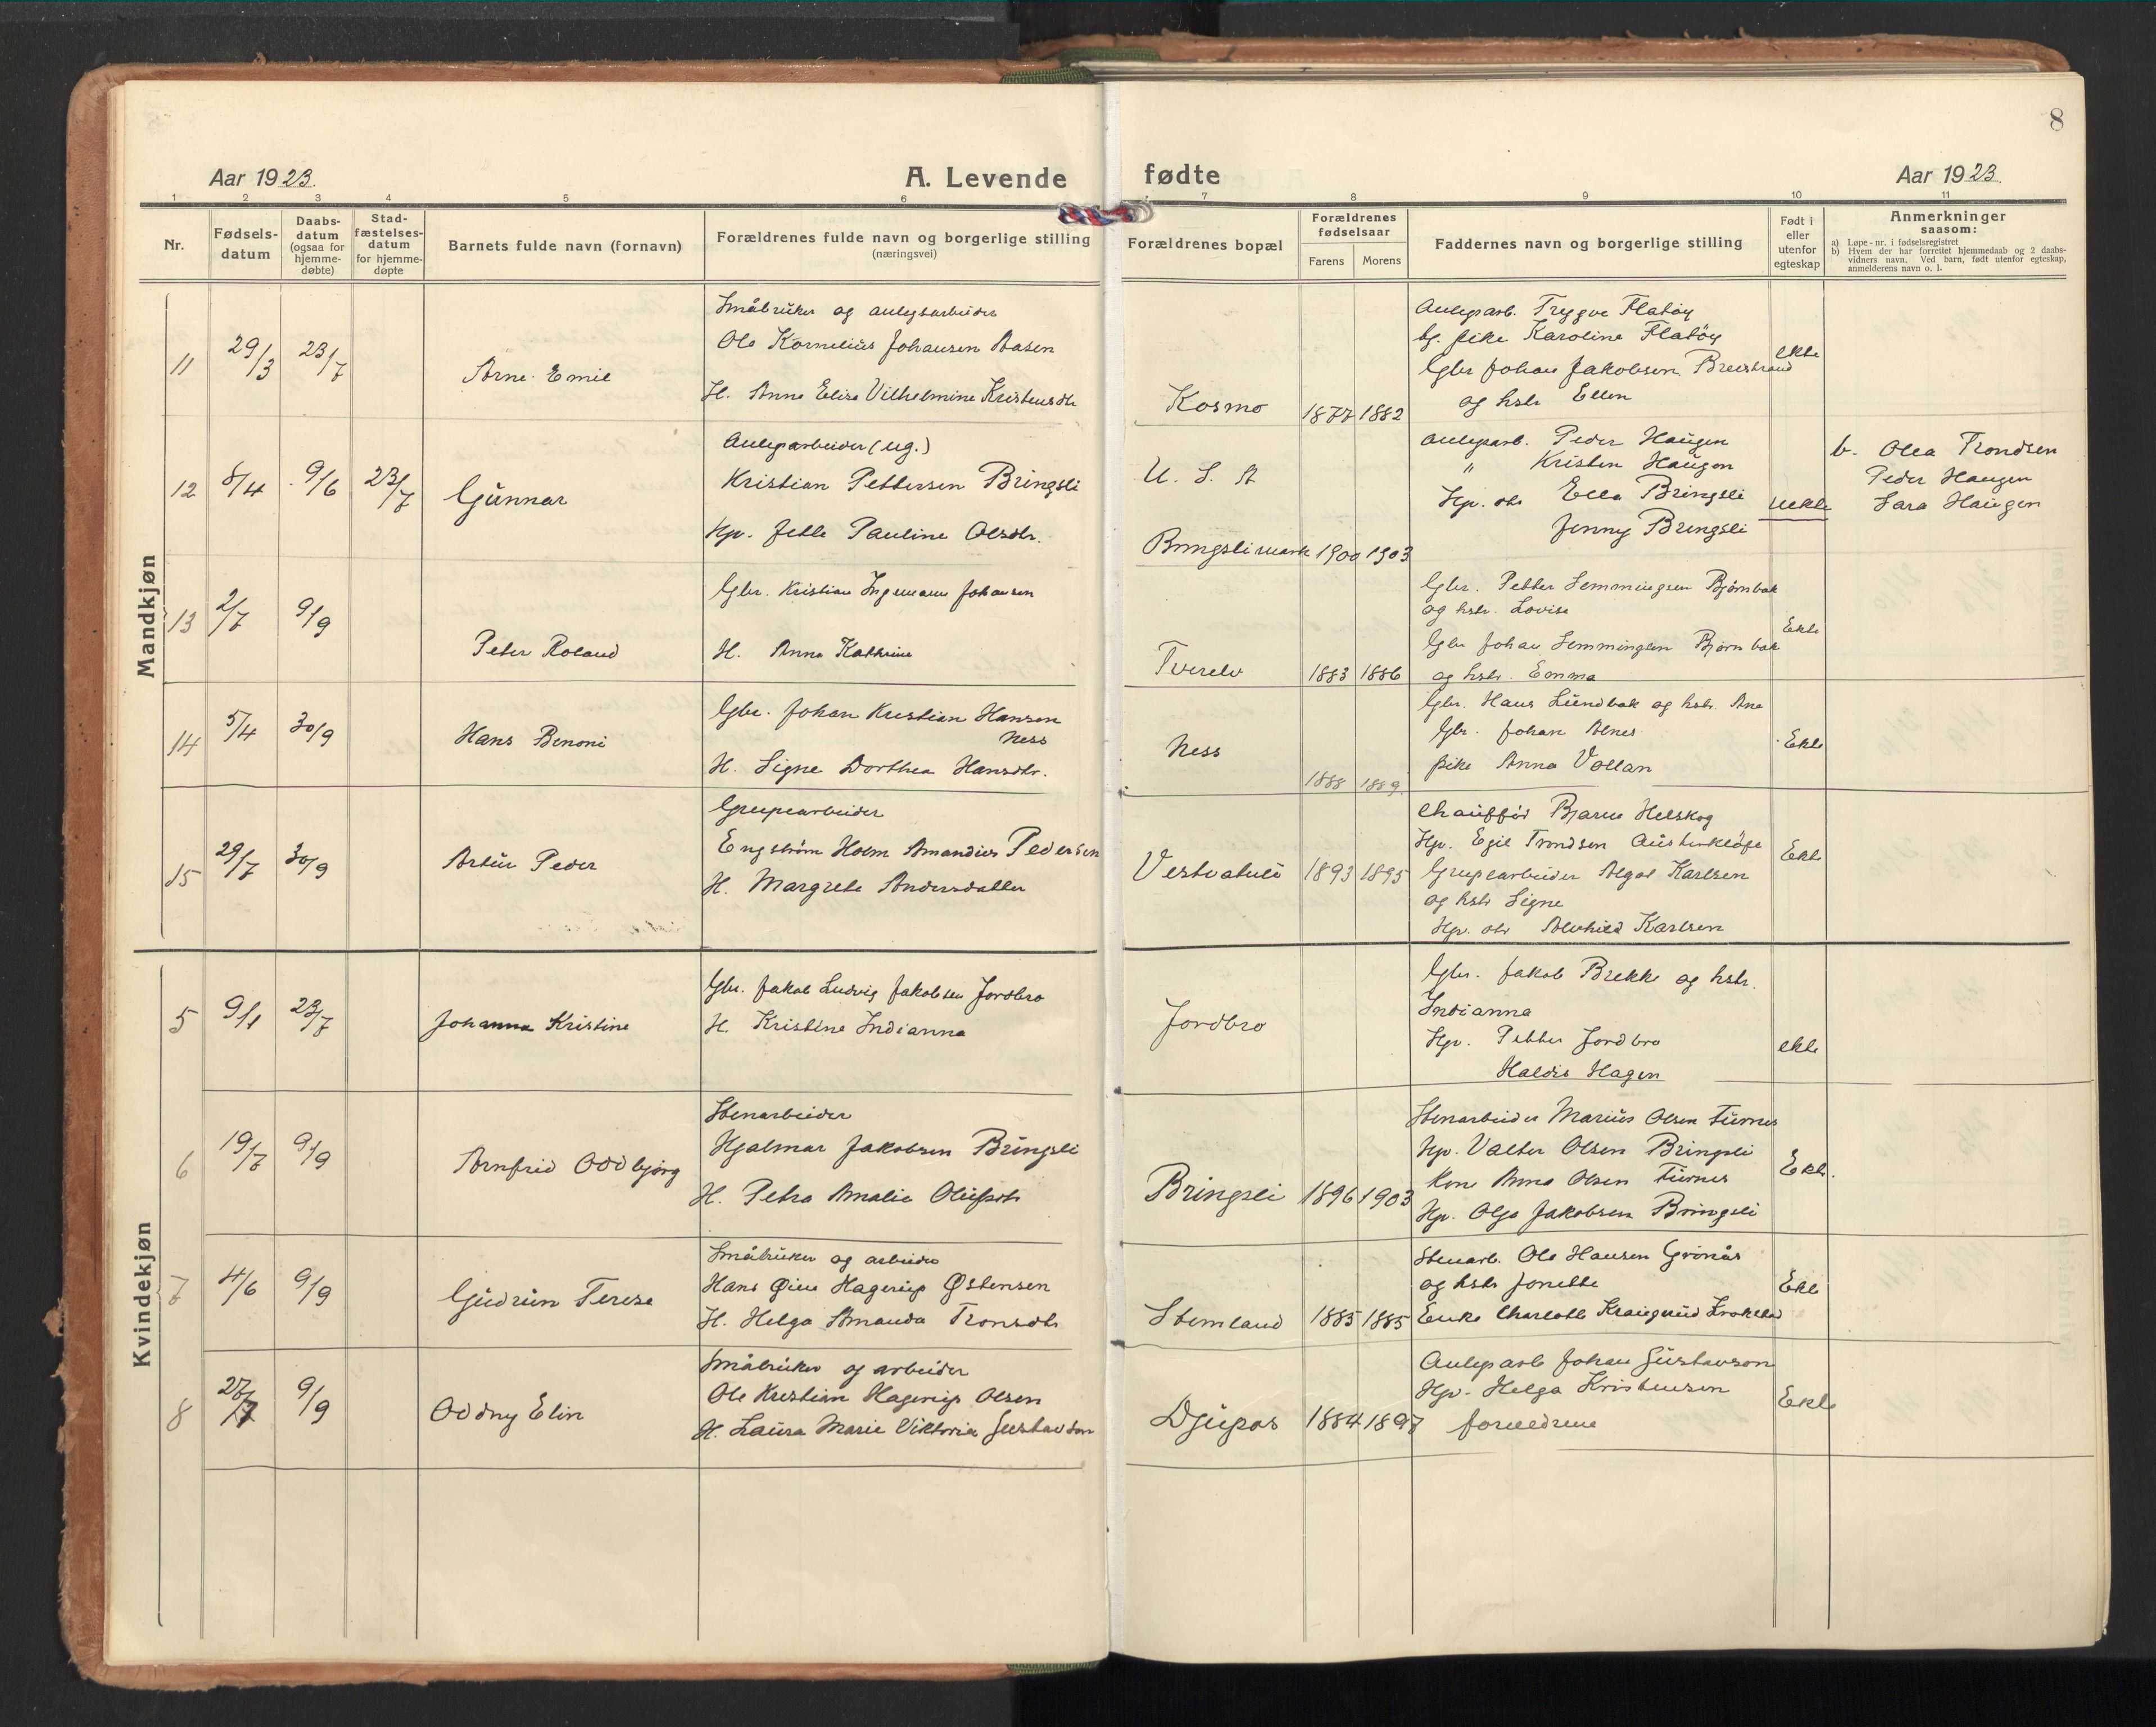 8
Aar 1923.
A. Levende
fødte
Aar 1923.
1 2 3 4 5 6 7 8 9 10 11
Nr.
Fødsels-
datum
Daabs-
datum
(ogsaa for
hjemme-
døbte)
Stad-
fæstelses-
datum
for hjemme-
døpte
Barnets fulde navn (fornavn)
Forældrenes fulde navn og borgerlige stilling
(næringsvei)
Forældrenes bopæl
Forældrenes
fødselsaar
Farens Morens
Faddernes navn og borgerlige stilling
Født i
eller
utenfor
egteskap
Anmerkninger
saasom:
a) Løpe-nr. i fødselsregistret
b) Hvem der har forrettet hjemmedaab og 2 daabs-
vidners navn. Ved barn, født utenfor egteskap,
anmelderens navn o. l.
Mandkjøn
11 29/3 23/7
Arne Emil
Småbruker og anlegsarbeider
Ole Kornelius Johansen Aasen
H. Anna Elisa Vilhelmine Kristensdtr
Kosmo 1877 1882
Anlegsarb. Trygve Flatöy
bg. pike Karoline Flatöy
Gbr Johan Jakobsen
og hstr Ellen
ekte
12 8/4 9/6 23/7
Gunnar
Anlegsarbeider (ug.)
Kristian Pettersen Bringsli
Hp. Jette Pauline Olsdtr.
U. S. A
Bringslimark 1900 1903
Anlegsarb. Peder Haugen
" Kristen Haugen
Hp. dtr Ella Bringsli
Jenny Bringsli
uekte
b. Olea Trondsen
Peder Haugen
Sara Haugen
13 2/7 9/9
Peter Roland
Gbr. Kristian Ingemann Johansen
H. Anna Kathrine
Tverelv 1883 1886
Gbr. Petter Lemmingsen Bjørnbak
og hstr. Lovise
Gbr Johan Lemmingsen Bjørnbak
og hstr. Emma
Ekte
14 5/4 30/9
Hans Benoni
Gbr. Johan Kristian Hansen
Ness
H. Signe Dorthea Hansdtr.
Ness
1888 1889.
Gbr. Hans Lundbak og hstr. Ane
Gbr. Johan Alnes
pike Anna Vollan
Ekte
15 29/7 30/9
Artur Peder
Grupearbeider
Engstrøm Holm Amandius Pedersen
H. Margrete Andersdatter
1893 1895
Chauffør Bjarne Helskog
Hp. Egil Trondsen
Grupearbeider Algot Karlsen
og hstr Signe
Hp. dtr Alvhild Karlsen
Ekte
Kvindekjøn
5 9/1 23/7
Johanna Kristine
Gbr. Jakob Ludvig Jakobsen Jordbro
H. Kristine Indianna
Jordbro
Gbr. Jakob Brekke og hstr.
Indianna
Hp. Petter Jordbro
Haldis Hagen
ekte
6 19/7 9/9
Arnfrid Oddbjørg
Stenarbeider
Hjalmar Jakobsen Bringsli
H. Petra Amalie
Bringsli 1896 1903
Stenarbeider Marius Olsen Turnes
Hp. Valter Olsen Bringsli
Kone Anna Olsen Turnes
Hp. Olga Jakobsen Bringsli
Ekte.
7 4/6 9/9
Gudrun Terese
Småbruker og arbeider
Hans Øien Hagerup Østensen
H. Helga Amanda Tronsdtr
Stemland 1885 1885
Stenarb. Ole Hansen Grönås
og hstr Jonette
Enke Charlotte
Ekte
8 27/7 9/9
Oddny Elin
Småbruker og arbeider
Ole Kristian Hagerup Olsen
H. Laura Marie Viktoria Gustavson
Djupos 1884 1897
Anlegsarb Johan Gustavson
Hp. Helga Kristensen
forældrene
Ekte